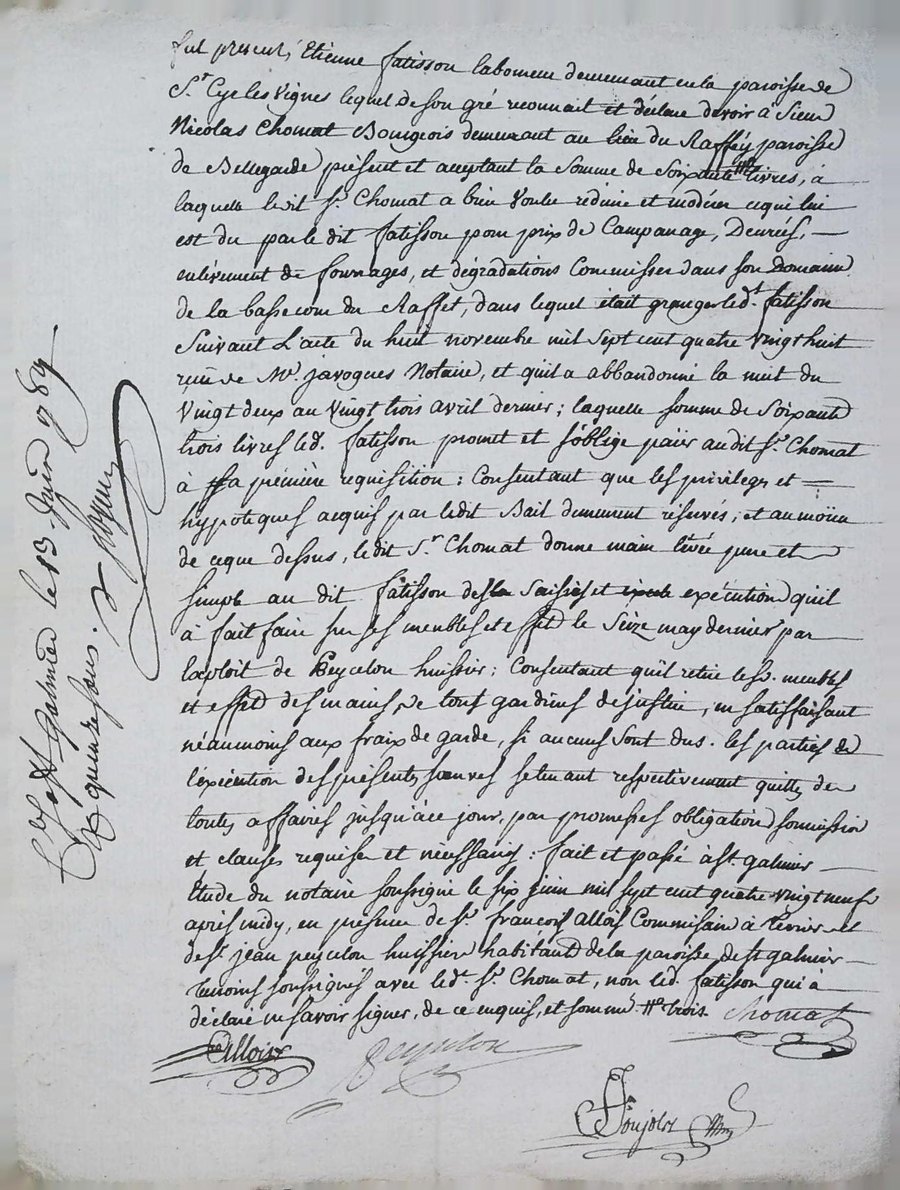 fut présent, Etienne fatisson laboureur demeurant en la paroisse de
St. Cyr les Vignes lequel de son gré reconnait et déclare devoir à Sieur
Nicolas Chomat Bourgeois demeurant au lieu du Rafféy paroisse
de Bellegarde présent et acceptant la somme de Soixante # livres, à
laquelle ledit Sr. Chomat a bien voulu réduire et modérer ce qui lui
est du par le dit fatisson pour prix de Campanage, Denrés, —
enlèvement de fourrages, et dégradations Commisses dans son Domaine
de la basse cour du Raffet, dans lequel était granger led.t fatisson
Suivant L'acte du huit novembre mil sept cent quatre vingt huit
recu de Me. javogues Notaire, et quil a abbandonné la nuit du
Vingt deux au Vingt trois avril dernier; laquelle somme de Soixante
trois livres led. fatisson promet et s'oblige païer audit Sr. Chomat
à sa première requisition: Consentant que les privileges et =
hypoteques acquis par ledit Bail demeurent réservés; et au moïen
de ceque dessus, le dit Sr. Chomat donne main levée pure et
simple au dit fatisson des Saisies et exécution quil
à fait faire sur ses meubles et effets le Seize may dernier par
Exploit de Peycelon huissier; Consentant qu'il retire lesd. meubles
et effets des mains de tous gardiens de justice, en satisfaisant
néaumoins aux fraix de garde, si aucuns sont dus. les parties de
l'éxécution des présentes se tenant respectivement quittes de
toutes affaires jusqu'à ce jour, par promesses obligation soumission
et clauses requises et nécessaires: fait et passé à St. galmier —
Etude du notaire soussigné le six juin mil sept cent quatre vingt neuf
après midy, en présence de Sr. francois allois Commissaire à terrier et
de Sr. jean peycelon huissier habitants de la paroisse de St galmier —
temoins soussignés avec led. Sr. Chomat, non led. fatisson qui à
déclaré ne savoir signer, de ce enquis, et sommé. # trois. Chomat
Allois Peycelon
Poujols
Clé à St Galmier le 13 Juin 1789
R quinze sous.